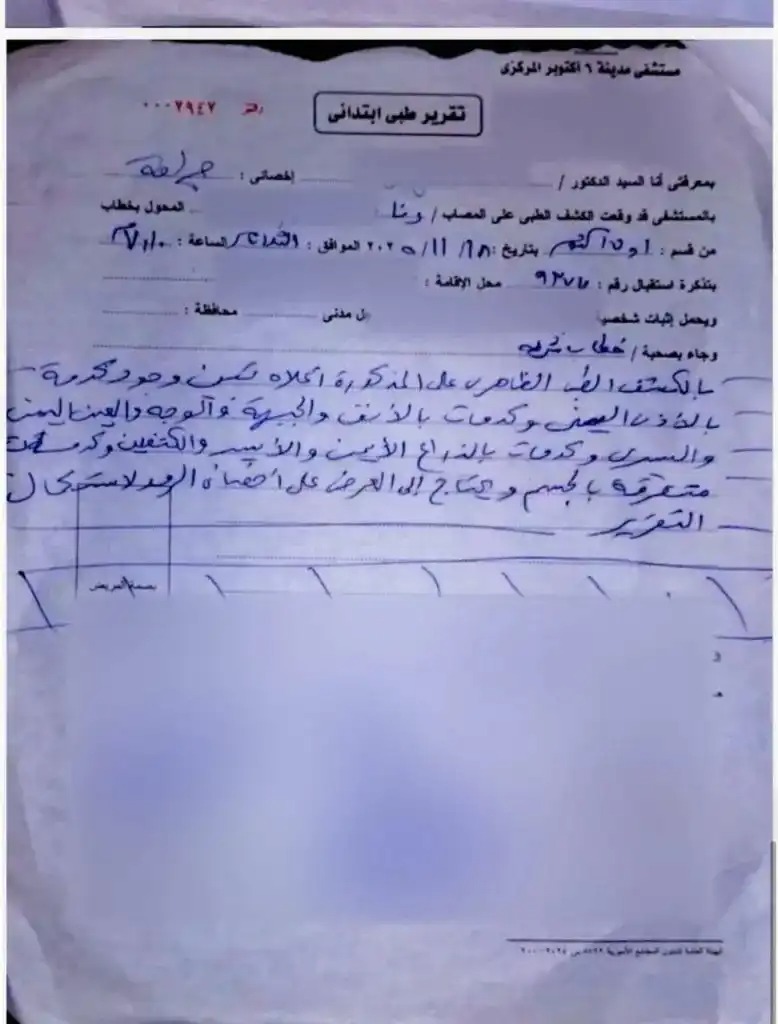 مستشفى مدينة ٦ أكتوبر المركزى
تقرير طبى ابتدائى
رقم ٠٠٠٢٩٤٧
بمعرفتى أنا السيد الدكتور / إخصائى : جراحة
بالمستشفى قد وقعت الكشف الطبى على المصاب / المحول بخطاب
من قسم : اول اكتوبر بتاريخ : ١٨/١١/٢٠٢٥ الموافق : الثلاثاء الساعة :
بتذكرة استقبال رقم : محل الإقامة :
ويحمل إثبات شخصية ل مدنى محافظة :
وجاء بصحبة / خطاب شرطه
بالكشف الطبى الظاهرى على المذكورة اعلاه تبين وجود كدمة
بالأذن اليمنى وكدمات بالأنف والجبهة والوجه والعين اليمنى
واليسرى وكدمات بالذراع الأيمن والأيسر والكتفين وكدمات
متفرقة بالجسم ويحتاج إلى العرض على اخصائى الرمد لاستكمال
التقرير
بصمة المريض
الهيئة العامة لشئون المطابع الأميرية